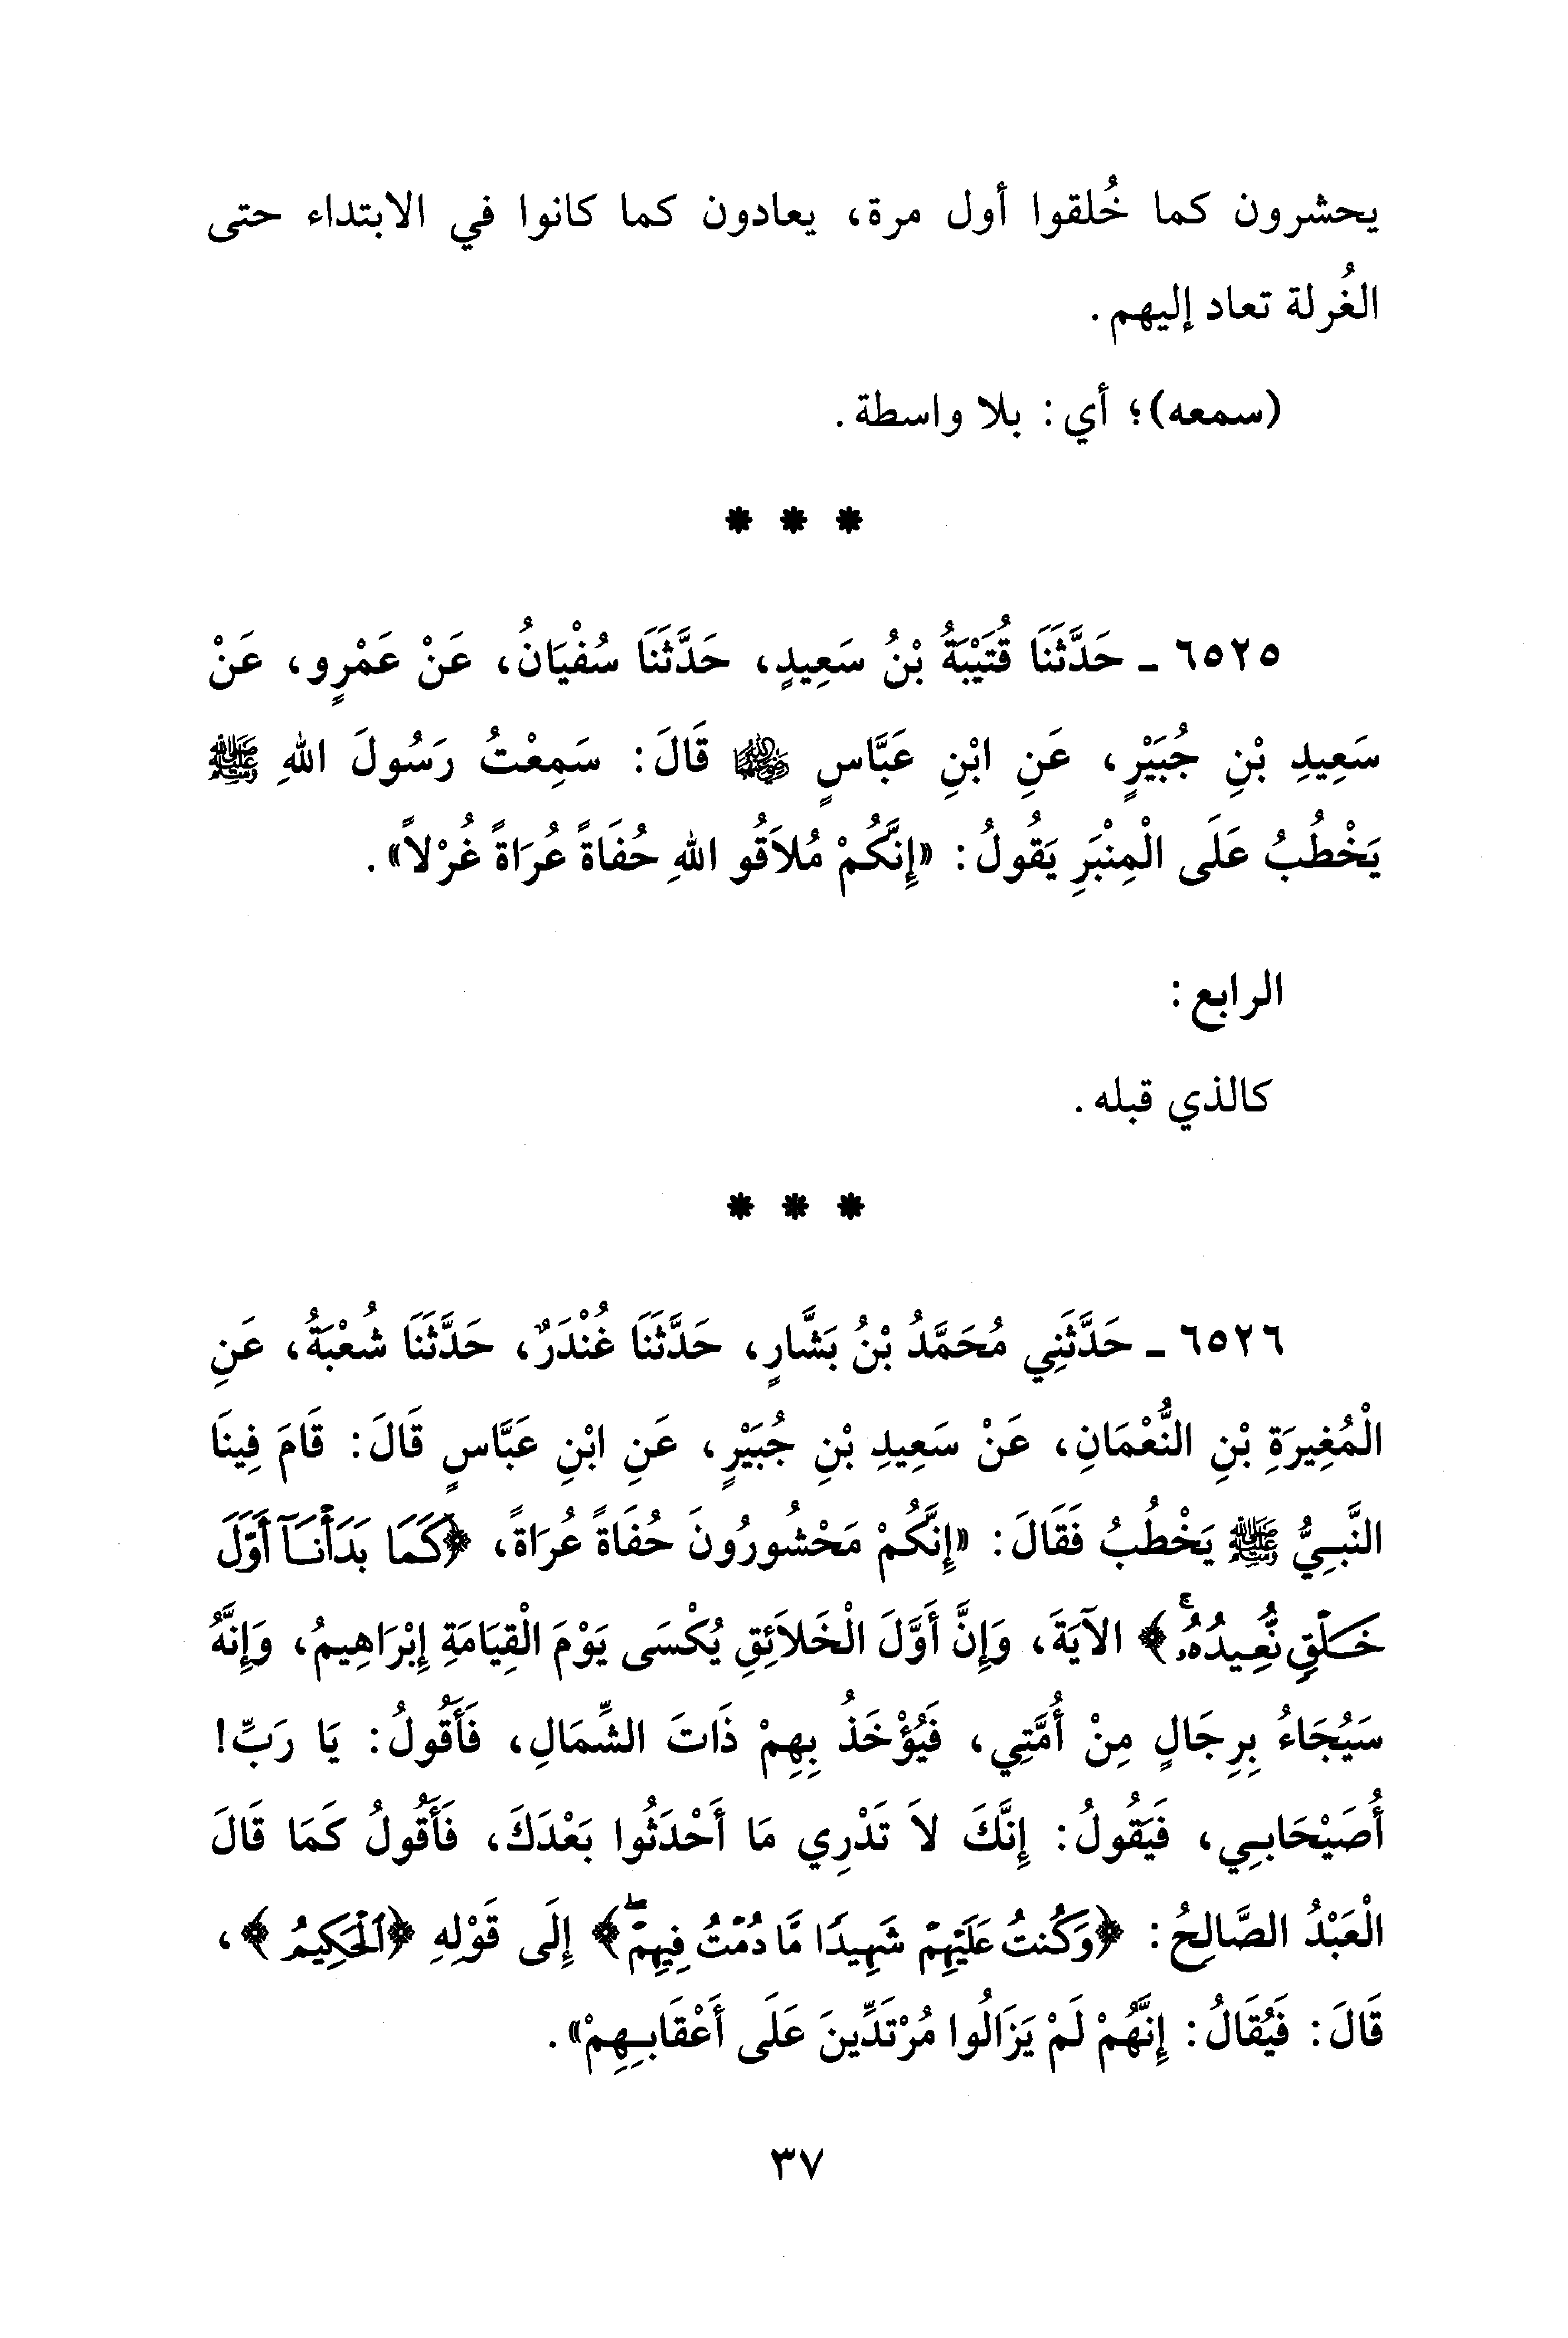 يحشرون كما خُلقوا أول مرة، يعادون كما كانوا في الابتداء حتى
الغُرلة تعاد إليهم.
(سمعه)؛ أي: بلا واسطة.
* * *
٦٥٢٥ - حَدَّثَنَا قُتَيْبَةُ بْنُ سَعِيدٍ، حَدَّثَنَا سُفْيَانُ، عَنْ عَمْرٍو، عَنْ
سَعِيدِ بْنِ جُبَيْرٍ، عَنِ ابْنِ عَبَّاسٍ رضي الله عنهما قَالَ: سَمِعْتُ رَسُولَ اللهِ ﷺ
يَخْطُبُ عَلَى الْمِنْبَرِ يَقُولُ: «إِنَّكُمْ مُلاَقُو اللهِ حُفَاةً عُرَاةً غُرْلاً».
الرابع:
كالذي قبله.
* * *
٦٥٢٦ - حَدَّثَنِي مُحَمَّدُ بْنُ بَشَّارٍ، حَدَّثَنَا غُنْدَرٌ، حَدَّثَنَا شُعْبَةُ، عَنِ
الْمُغِيرَةِ بْنِ النُّعْمَانِ، عَنْ سَعِيدِ بْنِ جُبَيْرٍ، عَنِ ابْنِ عَبَّاسٍ قَالَ: قَامَ فِينَا
النَّبِيُّ ﷺ يَخْطُبُ فَقَالَ: «إِنَّكُمْ مَحْشُورُونَ حُفَاةً عُرَاةً، ﴿كَمَا بَدَأْنَآ أَوَّلَ
خَلْقٍ نُّعِيدُهُۥ﴾ الآيَةَ، وَإِنَّ أَوَّلَ الْخَلاَئِقِ يُكْسَى يَوْمَ الْقِيَامَةِ إِبْرَاهِيمُ، وَإِنَّهُ
سَيُجَاءُ بِرِجَالٍ مِنْ أُمَّتِي، فَيُؤْخَذُ بِهِمْ ذَاتَ الشِّمَالِ، فَأَقُولُ: يَا رَبِّ!
أُصَيْحَابِي، فَيَقُولُ: إِنَّكَ لاَ تَدْرِي مَا أَحْدَثُوا بَعْدَكَ، فَأَقُولُ كَمَا قَالَ
الْعَبْدُ الصَّالِحُ: ﴿وَكُنتُ عَلَيْهِمْ شَهِيدًا مَّا دُمْتُ فِيهِمْ﴾ إِلَى قَوْلِهِ ﴿ٱلْحَكِيمُ﴾،
قَالَ: فَيُقَالُ: إِنَّهُمْ لَمْ يَزَالُوا مُرْتَدِّينَ عَلَى أَعْقَابِهِمْ».
٣٧